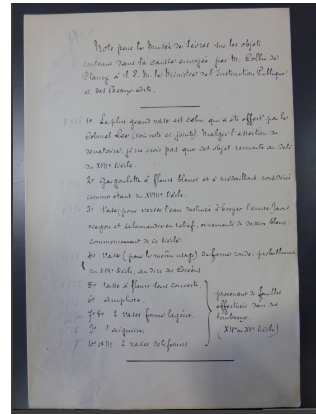 Note pour le Musée de Sèvres sur les objets
contenus dans la caisse envoyée par M. Collin de
Plancy à S. E. M. le Ministre de l'Instruction Publique
et des Beaux-Arts.
1° Le plus grand vase est celui qui a été offert par le
Colonel Leo (voir note ci-jointe). Malgré l'assertion du
donataire, je ne crois pas que cet objet remonte au delà
du XVIIe siècle.
2° Gargoulette à fleurs bleues et à médaillons: considérée
comme étant du XVIIIe siècle.
3° Vase pour verser l'eau destiné à broyer l'encre
dragon et salamandre en relief, ornements de dessin bleu:
commencement de ce siècle.
4° Vase (pour le même usage) de forme ronde, probablement
du XVIIe siècle, au dire des Coréens.
5° Tasse à fleurs sans couverte,
6° amphore,
7° 8° 2 vases forme lagène,
9° 1 aiguière,
10° et 11° 2 vases
provenant de fouilles
effectuées dans des
tombeaux.